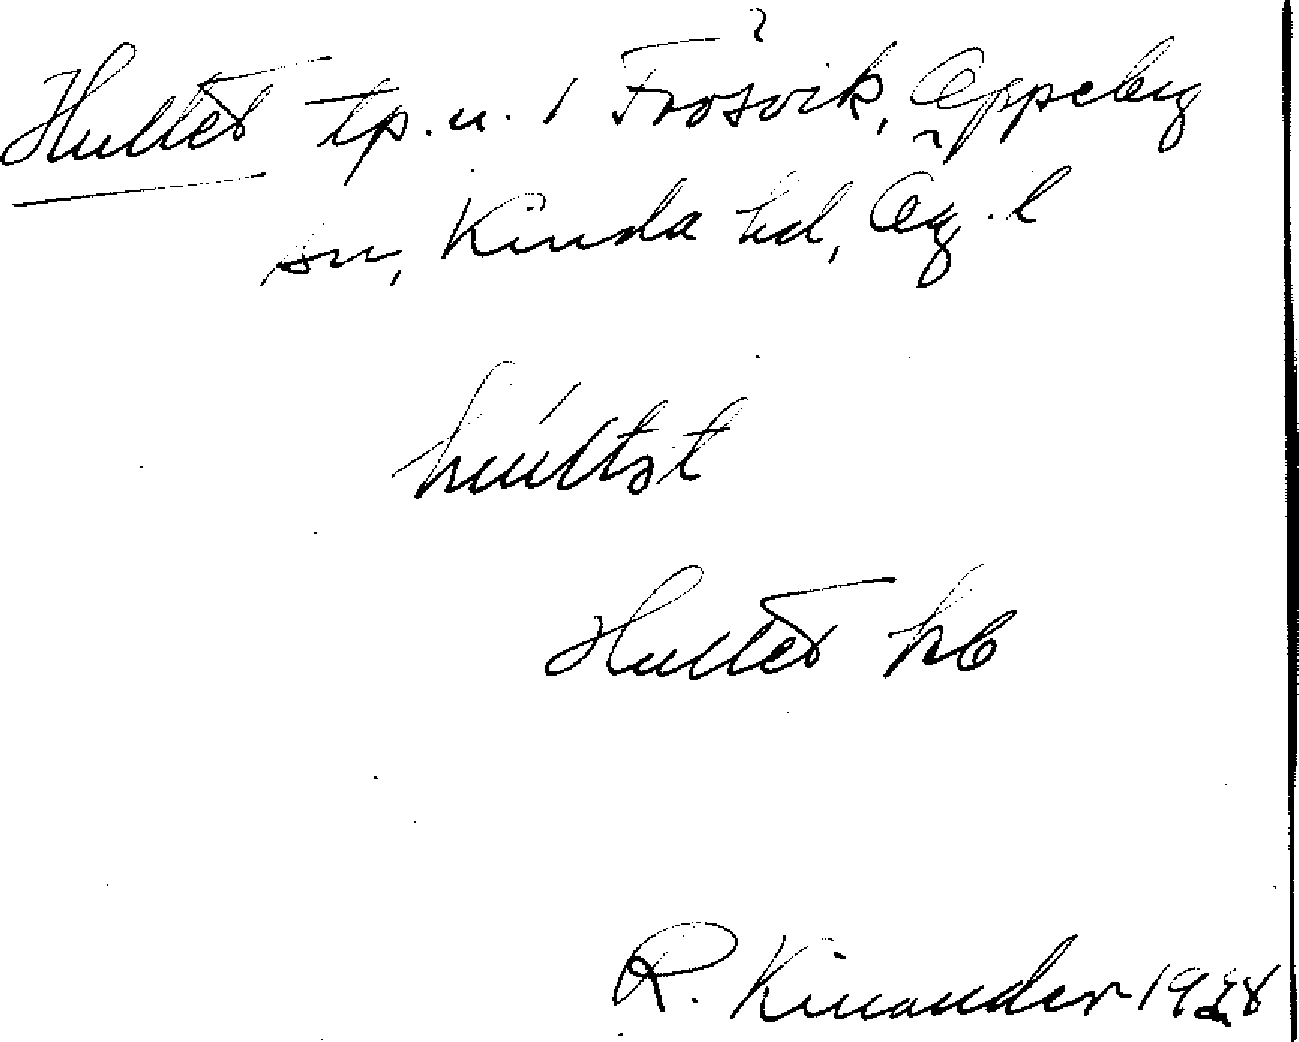 Hultet tp. u. 1 Frösvik, Oppeby
sn, Kinda hd, Ög. l
húltət
Hultet hb
R. Kinander 1928